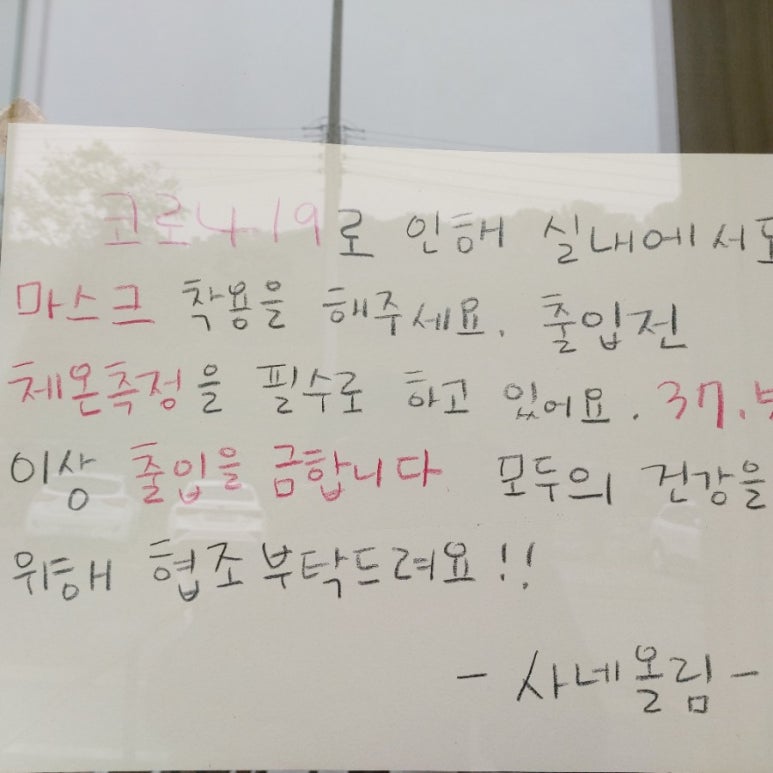 코로나19로 인해 실내에서도
마스크 착용을 해주세요. 출입전
체온측정을 필수로 하고 있어요. 37.5
이상 출입을 금합니다 모두의 건강을
위해 협조부탁드려요!!
- 사네올림 -